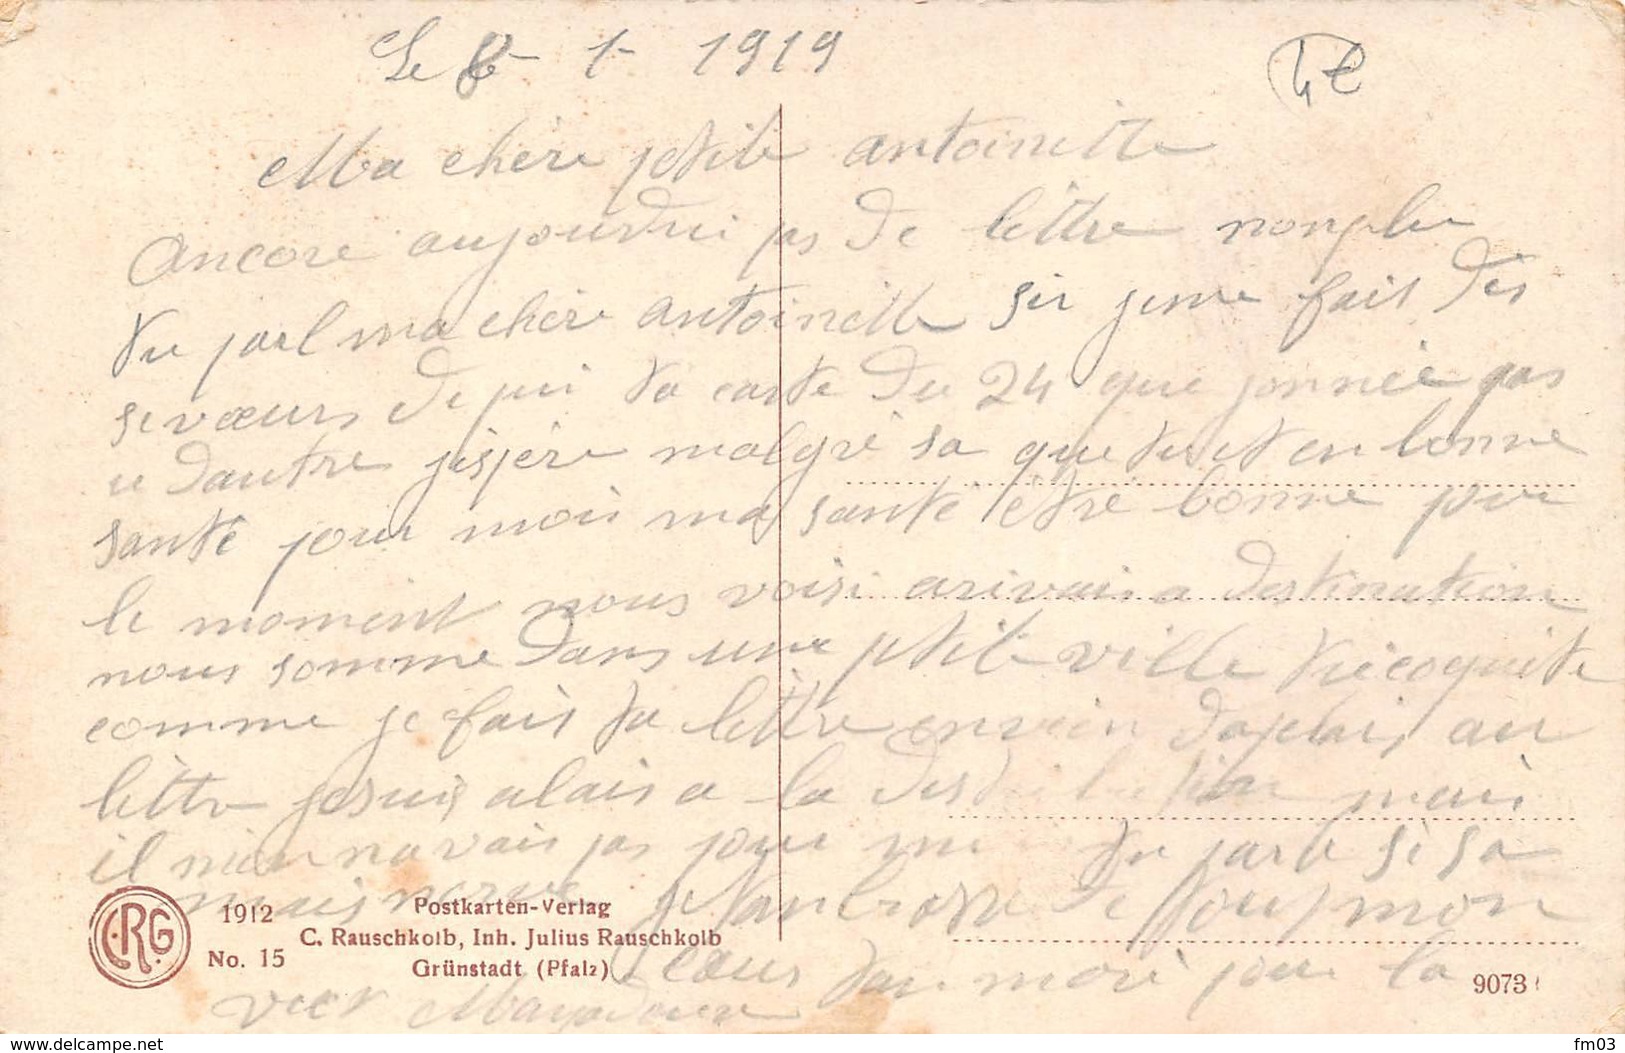 Le 8 - 1 - 1919
Ma chère petite antoinette
Ancore aujourdui pas de lettre nonplu
tu parl ma chère antoinette si jeme fait des
se vœurs de pui ta carte du 24 que jonnée pas
u dautre jespère malgré sa que tu et en bonne
santé pour moi ma santé être bonne pour
le moment nous voisi arivais a destination
nous somme dans une ptite ville
comme je fais ta lettre on vien daplai au
lettre jesuis alais a la distribution mais
il nien navais pas pour me tu parle si sa
mais nerve je tanbrasse de tout mon
cœur ton mari pour la
vier
1912
No. 15
Postkarten-Verlag
C. Rauschkolb, Inh. Julius Rauschkolb
Grünstadt (Pfalz)
9073
https://www.delcampe.net
fm03